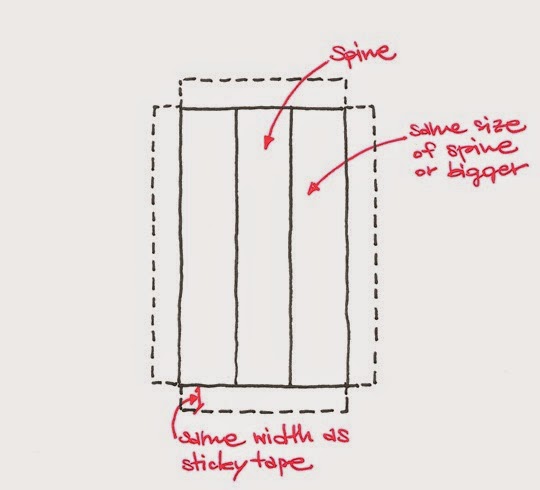 spine
same size
of spine
or bigger
same width as
sticky tape